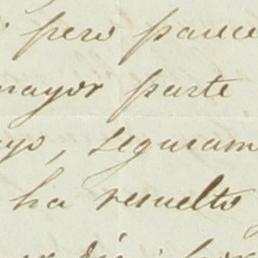 pero parece
mayor parte
yo, seguram
ha resuelto